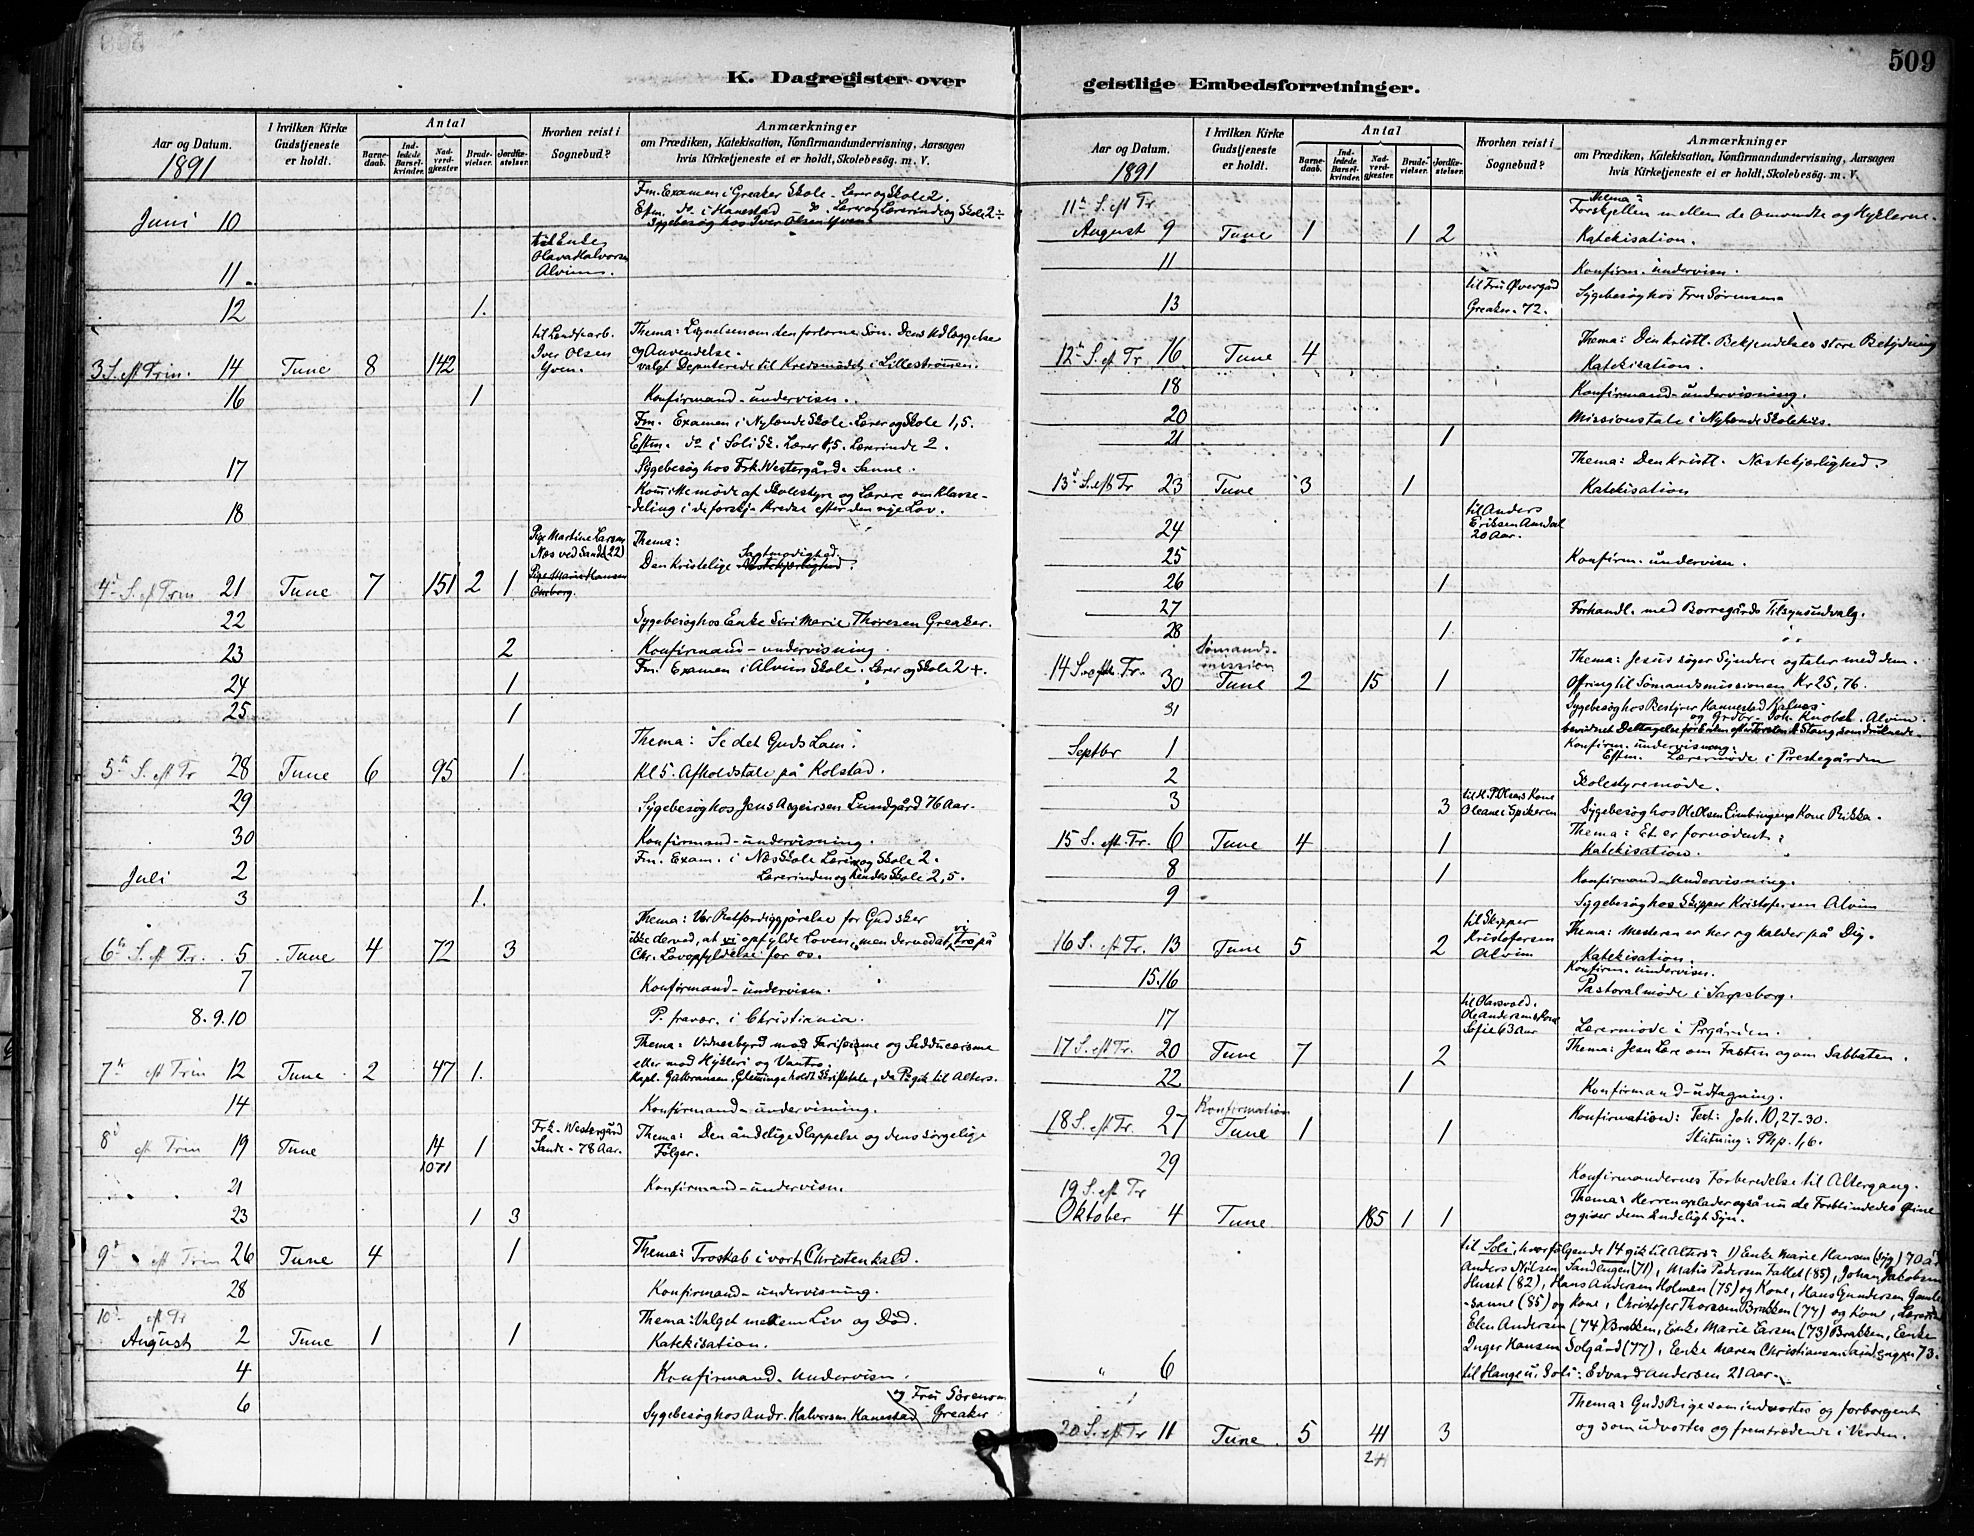 509
K. Dagregister over
geistlige Embedsforretninger.
Aar og Datum.
1891
I hvilken Kirke Gudstjeneste er holdt.
Antal
Barnedaab.
Indledede Barselkvinder.
Nadverdgjæster
Brudevielser.
Jordfæstelser.
Hvorhen reist i Sognebud?
Anmærkninger
om Prædiken, Katekisation, Konfirmandundervisning, Aarsagen
hvis Kirketjeneste ei er holdt, Skolebesøg. m. V.
Fm. Examen i Greaker Skole. Lærer og Skole 2.
Eftm. do i Hanestad do Lærer og Lærerinde og Skole 2 ÷
Juni 10 Sygebesøg hos Iver Olsen Yven
til Enke
Olava Halvorsen
11 Alvim.
12 1.
til Landharb. Thema: Lignelsen om den fortorne Søn. Dens Udlæggelse
Iver Olsen og Anvendelse.
3 S. eft Trin. 14 Tune 8 142 Yven. valgt Deputerede til Kredsmødet i Lillestrømmen.
16 1 Konfirmand-undervisn.
Fm. Examen i Nylande Skole. Lærer og Skole 1,5.
Eftm. do i Soli Sk. Lærer 1,5. Lærerinde 2.
17 Sygebesøg hos Frk. Westergård. Sanne.
Komittemøde af Skolestyre og Lærere om Klasse-
18 -deling i de forskj. Kredse efter den nye Lov.
Pige Martine Larsen Thema:
Næs ved Sande (22) Sagtmodighed
4de S. eft Trin 21 Tune 7 151 2 1 Pige Marie Hansen Den Kristelige Næstekjærlighed.
22 Sygebesøg hos Enke Siri Marie Thoresen Greaker.
23 2 Konfirmand-undervisning.
Fm. Examen i Alvim Skole. Lærer og Skole 2 +.
24 1
25 1
Thema: "Se det Guds Lam".
5te S. eft Tr 28 Tune 6 95 1. Kl 5. Afholdstale på Kolstad.
29 Sygebesøg hos Jens Asgeirsen Lundgård 76 Aar.
30 Konfirmand-undervisning.
Fm. Exam. i Næs Skole Lærer og Skole 2.
Juli 2 Lærerinden og hendes Skole 2,5.
3 1.
Thema: Vor Retfærdiggjørelse for Gud sker
ikke derved, at vi opfylde Loven, men derved at vi tro på
6te S. eft Tr. 5 Tune 4 72 3 Chr. Lovopfyldelse for os.
7 Konfirmand-undervisn.
8. 9. 10 P. fravær. i Christiania.
Thema: Vidnesbyrd mod Farisæisme og Sadducæisme
eller mod Hykleri og Vantro.
7de eft Trin 12 Tune 2 47 1. Kapl. Gulbransen, Glemminge holdt Skriftetale, da P. gik til Alters.
14 Konfirmand-undervisning.
Frk. Westergård Thema: Den åndelige Slappelse og dens sørgelige
8de eft Trin 19 Tune 14 1 Sande - 78 Aar. Følger.
1071
21 Konfirmand-undervisn.
23 1 3
9de eft Trin 26 Tune 4 1 Thema: Troskab i vort Christenkald.
28 Konfirmand-undervisning.
10de eft Tr Thema: Valget mellem Liv og Død.
August 2 Tune 1 1 Katekisation.
4 Konfirmand-undervisn.
og Fru Sørensen
6 Sygebesøg hos Andr. Halvorsen Hanestad Greaker
Aar og Datum.
1891
I hvilken Kirke Gudstjeneste er holdt.
Antal
Barnedaab.
Indledede Barselkvinder.
Nadverdgjæster
Brudevielser.
Jordfæstelser.
Hvorhen reist i Sognebud?
Anmærkninger
om Prædiken, Katekisation, Konfirmandundervisning, Aarsagen
hvis Kirketjeneste ei er holdt, Skolebesøg. m. V.
11te S. eft Tr Thema:
Forskjellen mellem de Omvendte og Hyklerne.
August 9 Tune 1 1 2 Katekisation.
11 Konfirm. undervisn.
til Fru Øvergård
13 Greaker. 72. Sygebesøg hos Fru Sørensen
Thema: Den Kristl. Bekjendelses store Betydning
12te S. eft Tr. 16 Tune 4 Katekisation.
18 Konfirmand-undervisning.
20 Missionstale i Nylande Skolehus.
21 1
Thema: Den Kristl. Næstekjærlighed
13de S. eft Tr 23 Tune 3 1 Katekisation
til Anders
24 Eriksen
20 Aar.
25 Konfirm. undervisn.
26 1
27 Forhandl. med Borregårds Tilsynsudvalg.
28 1
Sømandsmission Thema: Jesus søger Syndere og taler med dem.
14 S. eft. Tr. 30 Tune 2 15 1 Offring til Sømandsmissionen Kr 25,76.
31 Sygebesøg hos Bestyrer Hannestad Kalnæs
og Grdbr. Joh. Knobel. Alvim.
Septbr 1 Konfirm. undervisning.
Eftm. Lærermøde i Prestegården
2 Skolestyremøde.
3 3 Sygebesøg hos Ole Olsen
15 S. eft. Tr. 6 Tune 4 1 Thema: Et er fornødent.
Katekisation.
8 1 Konfirmand-Undervisning.
9 Sygebesøg hos Skipper Kristofersen Alvim
til Skipper
Kristofersen
16 S. eft Tr. 13 Tune 5 2 Alvim Thema: Mesteren er her og kalder på Dig.
Katekisation.
Konfirm. undervisn.
15. 16 Pastoralmøde i Sarpsborg.
17 Sofie 63 Aar Lærermøde i Prgården.
17 S. eft Tr. 20 Tune 7 2 Thema: Jesu Lære om Fasten og om Sabbaten.
22 1 Konfirmand-udtagning.
Konfirmation Konfirmation: Text: Joh. 10, 27-30.
18 S. eft Tr. 27 Tune 1 1 Slutning: Php. 1,6.
29 Konfirmandernes Forberedelse til Altergang.
19 S. eft Tr Thema: Herren oplader også nu de Forblindedes Øine
Oktober 4 Tune 185 1 1 og giver dem Åndeligt Syn.
til Soli, hvor følgende 14 gik til Alters: 1) Enke Marie Hansen (syg) 70 år
Anders Nilsen Sandengen (71), Matis Pedersen Fallet (85), Johan Jakobsen
Huset (82), Hans Andersen Holmen (75) og Kone, Hans Gundersen Gamle-
-sanne (85) og Kone, Christofer Thoresen Brakken (77) og Kone,
Elen Andersen (74) Brakken, Enke Marie Larsen (73) Brakken, Enke
Inger Hansen Solgård (77), Enke Maren Christiansen Sandengen 73.
" 6 til Hauge u. Soli: Edvard Andersen 21 Aar.
Thema: Guds Rige som indvortes og forborgent
20 S. eft Tr 11 Tune. 5 41 3 og som udvortes og fremtrædende i Verden.